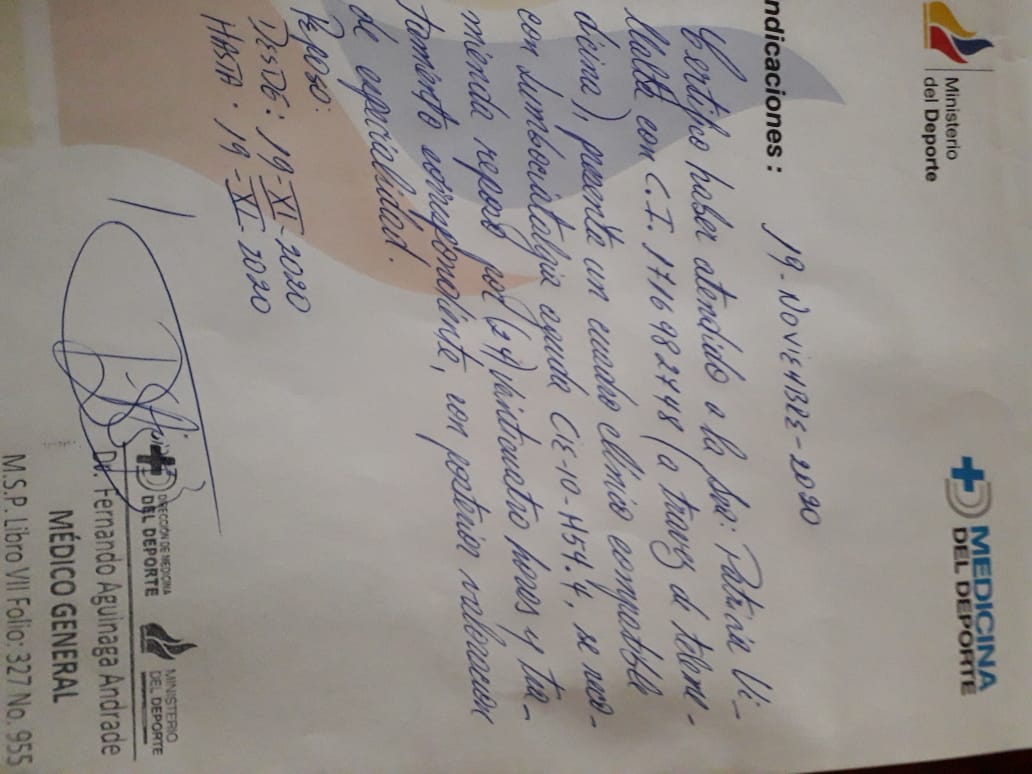 Ministerio
del Deporte
MEDICINA
DEL DEPORTE
ndicaciones :
19-NOVIEMBRE-2020
Certifico haber atendido a la Sra: Patricia Vi-
llalta con C.I. 1716982748 (a travez de teleme-
dicina), presenta un cuadro clínico compatible
con Lumbociatalgia aguda CIE-10-M54.4, se reco-
mienda reposo por (24) Veinticuatro horas y tra-
tamiento correspondiente, con posterior valoracion
de especialidad.
Reposo:
DESDE: 19-XI-2020
HASTA: 19-XI-2020
DIRECCIÓN DE MEDICINA
DEL DEPORTE
MINISTERIO
DEL DEPORTE
Dr. Fernando Aguinaga Andrade
MÉDICO GENERAL
M.S.P. Libro VII Folio: 327 No. 955